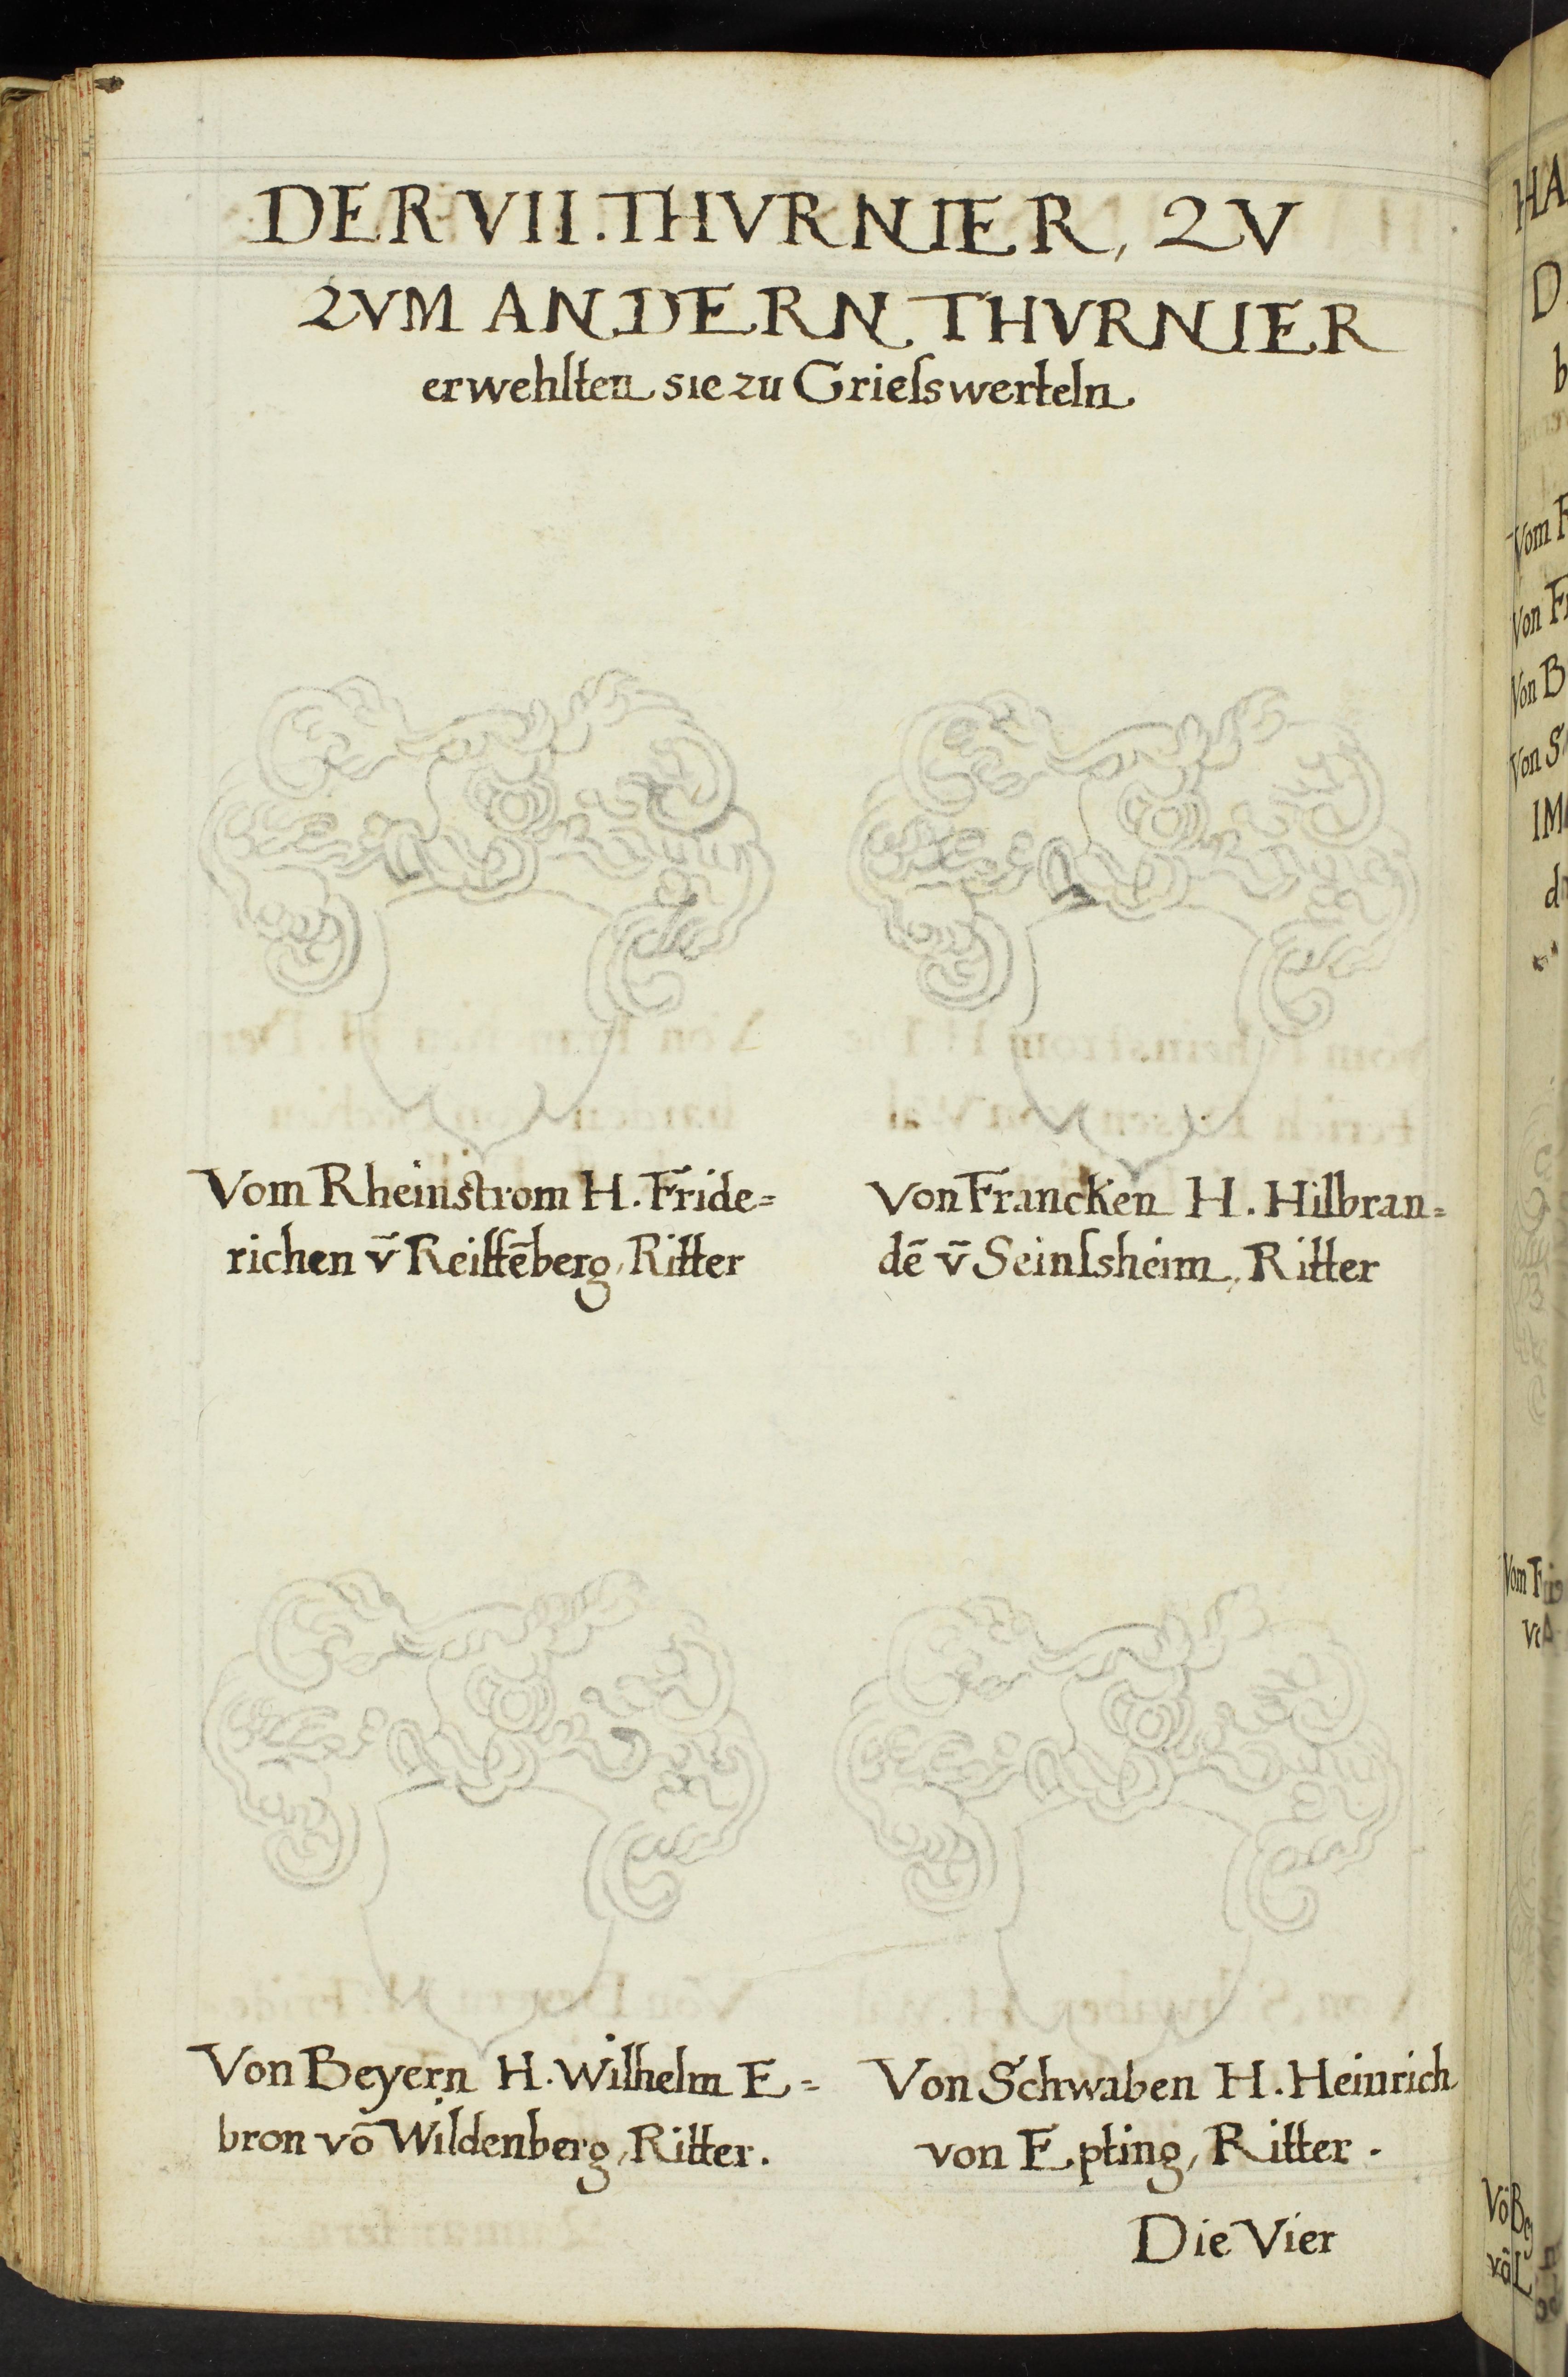 DER VII. THVRNIER, ZV
ZVM ANDERN THVRNIER
erwehlten sie zu Grieſswerteln
Vom Rheinstrom H. Fride=
richen v̄ Reiffēberg, Ritter
Von Francken H. Hilbran=
dē v̄ Seinſsheim, Ritter
Von Beyern H. Wilhelm E=
bron vō Wildenberg, Ritter.
Von Schwaben H. Heinrich
von Epting, Ritter.
Die Vier